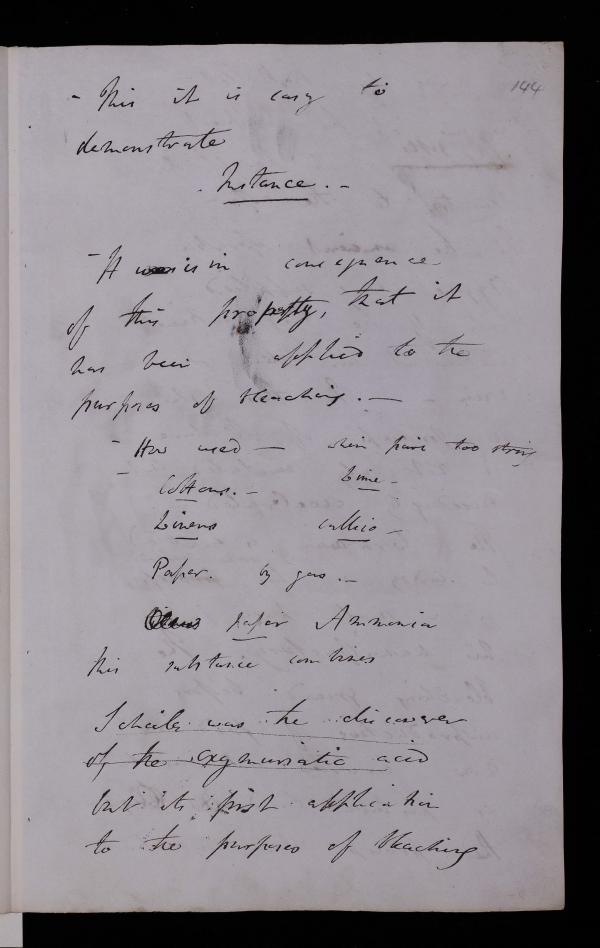 144
- This it is easy to
demonstrate
Instance. -
- It is in consequence
of this property, that it
has been applied to the
purposes of bleaching. -
- How used - when pure too strong
Cottons. - Lime -
Linens callico -
Paper. by gas. -
paper Ammonia
this substance combines
Scheele was the discoverer
of the oxymuriatic acid
but its first application
to the purposes of bleaching